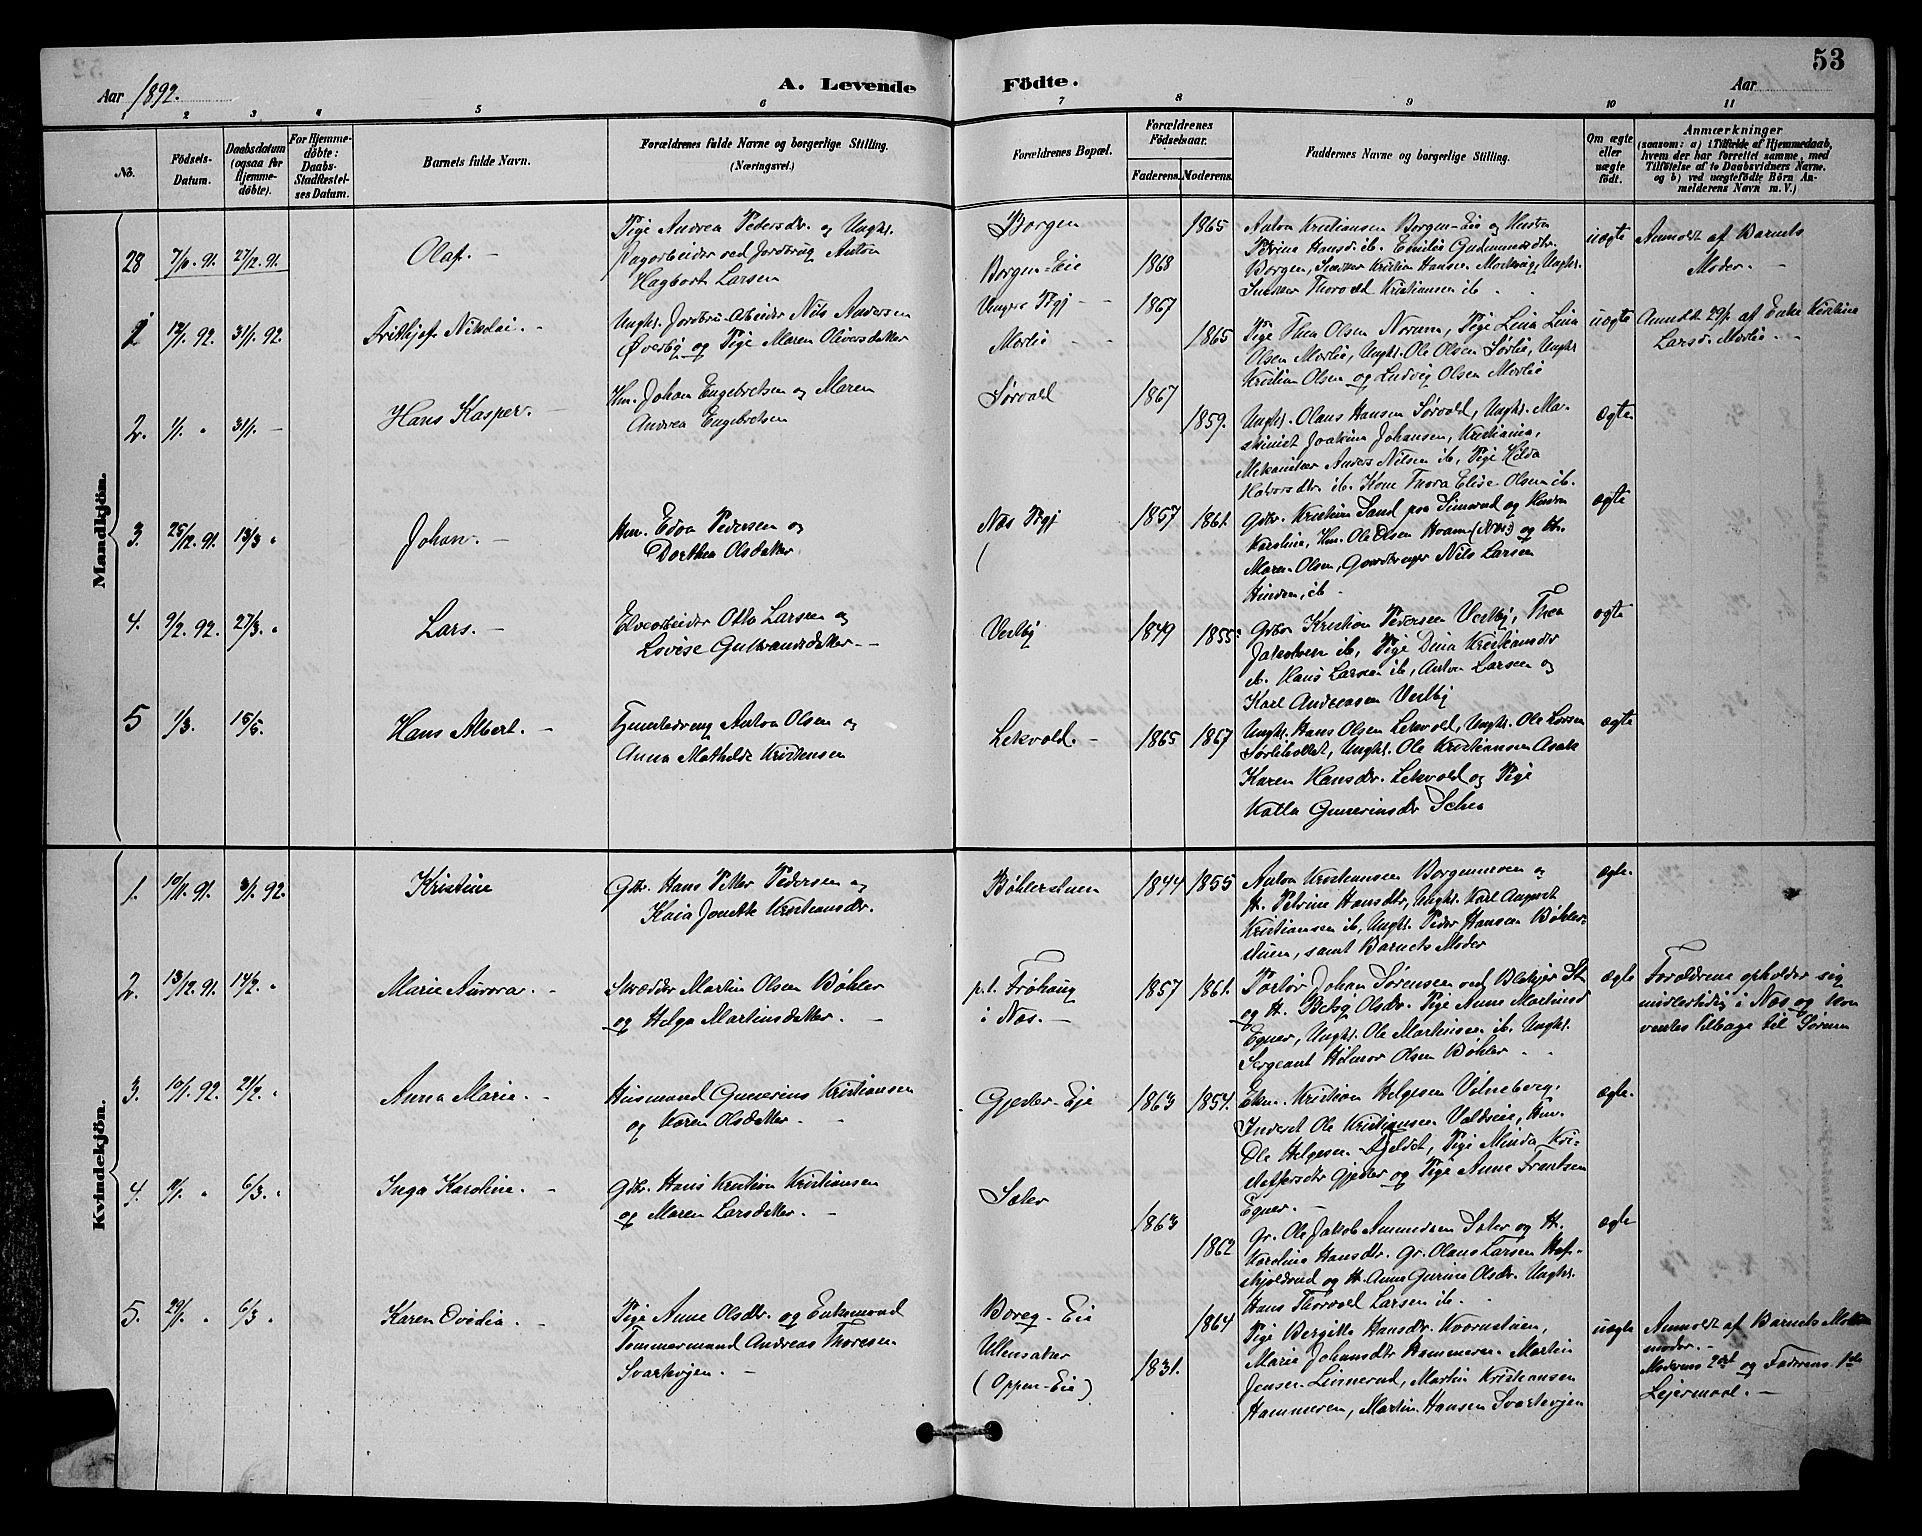 53
Aar 1892.
A. Levende Födte.
Aar
1 2 3 4 5 6 7 8 9 10 11
No.
Födsels-Datum.
Daabsdatum (ogsaa for Hjemme-döbte).
For Hjemme-döbte: Daabs-Stadfæstel-ses Datum.
Barnets fulde Navn.
Forældrenes fulde Navne og borgerlige Stilling. (Næringsvei.)
Forældrenes Bopæl.
Forældrenes Födselsaar.
Faderens. Moderens.
Faddernes Navne og borgerlige Stilling.
Om ægte eller uægte födt.
Anmærkninger
(saasom: a) i Tilfælde af Hjemmedaab, hvem der har forrettet samme, med Tilföielse af to Daabsvidners Navne. og b) ved uægtefödte Börn An-melderens Navn m. V.)
Mandkjön.
28 27/12 91. Olaf. –
Pige Andrea Pedersdr. og Ungk.
Dagarbeider ved Jordbrug Anton
Hagbart Larsen
Borgen
Borgen-Eie
1868 1865
Anton Kristiansen Borgen-Eie og Hustru
Petrine Hansdr. ib. Emilie Gudmundsdtr.
Borgen, Snedker Kristian Hansen Ungk.
Snedker Thorvald Kristiansen ib.
uægte
Anmeldt af Barnets
Moder. –
1 12/1 92. 31/1 92. Frithjof Nikolai. –
Ungk. Jordbr.-Arbeider Nils Andersen
Øverby og Pige Maren Oliversdatter
Mørlie
1867 1865
Pige Thea Olsen Norum, Pige Lina Lina
Olsen Mørlie, Ungk. Ole Olsen Sørlie, Ungk.
Kristian Olsen og Ludvig Olsen Mørlie
uægte
Anmeldt 29/1 af Enke Kirstine
Larsd. Mørlie. –
2. 1/1. " 31/1. – Hans Kasper. –
Hm. Johan Engebretsen og Maren
Andrea Engebretsen
Sørvald
1867 1859.
Ungk. Olaus Hansen Sørvald, Ungk. Ma-
skinist Joakim Johansen, Kristiania,
Mekaniker Anders Nilsen ib, Pige Hilda
Halvorsdtr ib. Kone Thora Elise Olsen ib.
ægte
3. 25/12 91. 13/3 " Johan. –
Hm. Edva Pedersen og
Dorthea Olsdatter
Næs Prgj
1857 1861.
Gdbr. Kristian Sand paa Simerud og Hustru
Karoline, Hm. Ole Olsen Hvam (Næs) og H.
Maren Olsen, Gaardbruger Nils Larsen
Hindem, ib.
ægte
4. 9/2 92. 27/3. " Lars. –
Elvearbeider Otto Larsen og
Lovise Gulbrandsdatter. –
Vestby
1849 1855.
Gdbr Kristian Pedersen Vestby, Thea
Jakobsen ib, Pige Dina Kristiansdtr
ib. Hans Larsen ib, Anton Larsen og
Karl Andreasen Vestby
ægte
5 1/3. 15/5. Hans Albert. –
Tjenestedreng Anton Olsen og
Anna Mathilde Kristensen
Lekvold. –
1865 1867
Ungk. Hans Olsen Lekvold, Ungk. Ole Larsen
Sørliholtet, Ungk. Ole Kristiansen Asak
Karen Hansdtr. Lekvold og Pige
Kalla Gunerinsdr Schea
ægte
Kvindekjön.
1. 10/11. 91. 3/1. 92. Kristine
Gdbr. Hans Petter Pedersen og
Kaia Jonette Kristiansdr.
Bøhlerstuen
1844 1855
Anton Kristiansen Borgenmoen og
H. Petrine Hansdtr, Ungk. Karl August
Kristiansen ib, Ungk. Peder Hansen Bøhler-
stuen, samt Barnets Moder
ægte.
2. 13/12. 91. 14/2 " Marie Aurora. –
Skrædder Martin Olsen Bøhler
og Helga Martinsdatter. –
p.t. Frøhaug
i Næs. –
1857 1861.
Portør Johan Sørensen ved Blakjer St
og H. Betsy Olsdr. Pige Anne Martinsd
Egner, Ungk. Ole Martinsen ib. Ungk.
Sergeant Hilmar Olsen Bøhler.
ægte
Forældrene opholder sig
midlertidig i Næs og kan
ventes tilbage til Sørum
3. 10/1. 92. 21/2. " Anna Marie. –
Husmand Gunerius Kristiansen
og Karen Olsdatter. –
Gjester-Eje
1863 1854.
Ekm. Kristian Helgesen Vilneberg,
Inderst Ole Kristiansen Valdseie, Hm.
Ole Helgesen Fjeldet, Pige Minda Kri-
stoffersdtr Gjester og Pige Anne Frantsen
Egner. –
ægte.
4. " 6/3. " Inga Karoline. –
Gdbr. Hans Kristian Kristiansen
og Maren Larsdatter. –
Sæter
1863 1862
Gr. Ole Jakob Amundsen Sæter og H.
Karoline Hansdtr. Gr. Olaus Larsen Hef-
skjoldrud og H. Anne Gurine Olsdr. Ungk.
Hans Thorvald Larsen ib.
ægte
5. 29/1. " 6/3 " Karen Ovidia. –
Pige Anne Olsdtr. og Enkemand
Tømmermand Andreas Thoresen
Svartvejen. –
Boreg-Eie
Ullensaker
(Oppen-Eie)
1831. 1864
Pige Bergitte Hansdtr. Kvernstuen,
Marie Johansdtr Hammeren Martin
Jensen Linnerud, Martin Kristiansen
Hammeren, Martin Hansen Svartvejen
uægte
Anmeldt af Barnets
moder. –
Moderens 2det og Faderens 1ste
Lejermaal. –